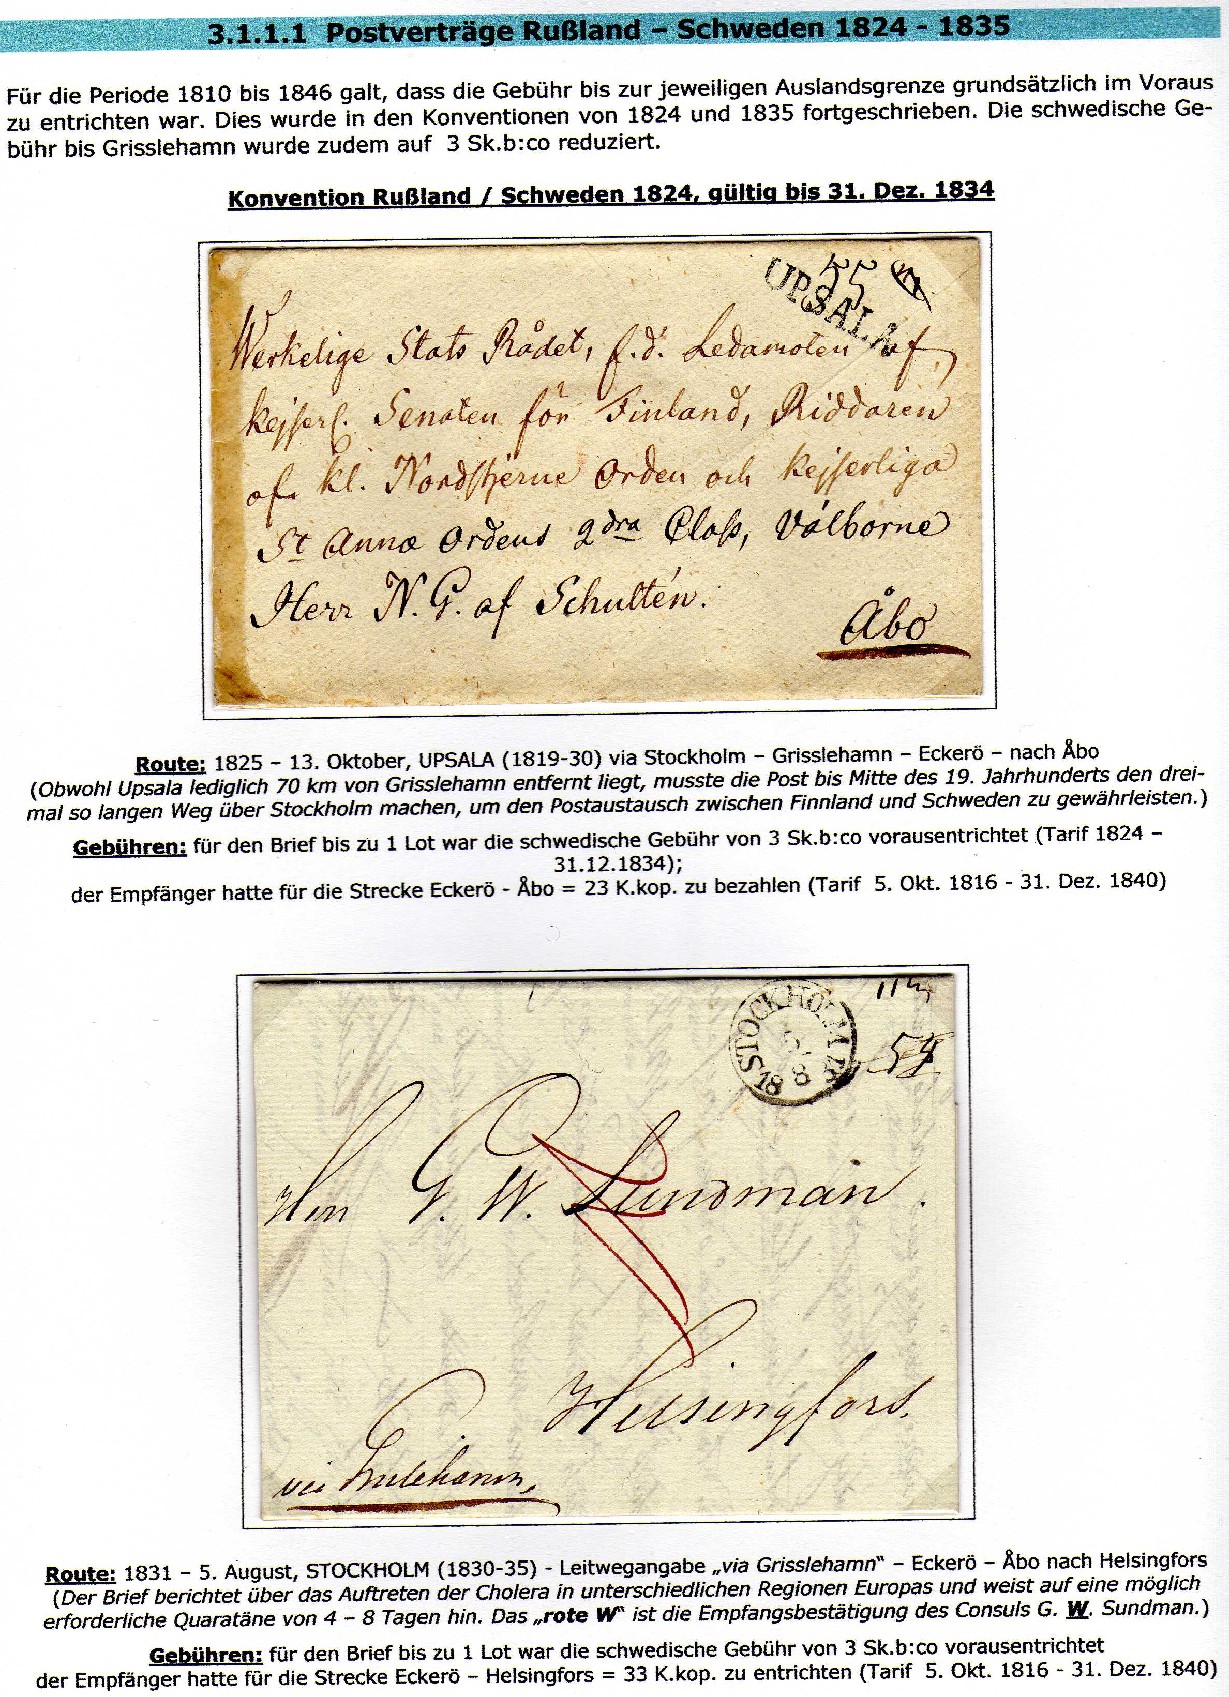 3.1.1.1 Postverträge Rußland – Schweden 1824 - 1835
Für die Periode 1810 bis 1846 galt, dass die Gebühr bis zur jeweiligen Auslandsgrenze grundsätzlich im Voraus
zu entrichten war. Dies wurde in den Konventionen von 1824 und 1835 fortgeschrieben. Die schwedische Ge-
bühr bis Grisslehamn wurde zudem auf 3 Sk.b:co reduziert.
Konvention Rußland / Schweden 1824, gültig bis 31. Dez. 1834
55
UPSALA
Werkelige Stats Rådet, f.d. Ledamoten af
kejserl. Senaten för Finland, Riddaren
af kl. Nordstjerne Orden och kejserliga
St Annæ Ordens 2dra Class, Välborne
Herr N. G. af Schultén.
Åbo
Route: 1825 – 13. Oktober, UPSALA (1819-30) via Stockholm – Grisslehamn – Eckerö – nach Åbo
(Obwohl Upsala lediglich 70 km von Grisslehamn entfernt liegt, musste die Post bis Mitte des 19. Jahrhunderts den drei-
mal so langen Weg über Stockholm machen, um den Postaustausch zwischen Finnland und Schweden zu gewährleisten.)
Gebühren: für den Brief bis zu 1 Lot war die schwedische Gebühr von 3 Sk.b:co vorausentrichtet (Tarif 1824 –
31.12.1834);
der Empfänger hatte für die Strecke Eckerö - Åbo = 23 K.kop. zu bezahlen (Tarif 5. Okt. 1816 - 31. Dez. 1840)
STOCKHOLM
5
8
18
Herr G. W. Sundman.
Helsingfors.
via Grislehamn,
Route: 1831 – 5. August, STOCKHOLM (1830-35) - Leitwegangabe „via Grisslehamn“ – Eckerö – Åbo nach Helsingfors
(Der Brief berichtet über das Auftreten der Cholera in unterschiedlichen Regionen Europas und weist auf eine möglich
erforderliche Quaratäne von 4 – 8 Tagen hin. Das „rote W“ ist die Empfangsbestätigung des Consuls G. W. Sundman.)
Gebühren: für den Brief bis zu 1 Lot war die schwedische Gebühr von 3 Sk.b:co vorausentrichtet
der Empfänger hatte für die Strecke Eckerö – Helsingfors = 33 K.kop. zu entrichten (Tarif 5. Okt. 1816 - 31. Dez. 1840)